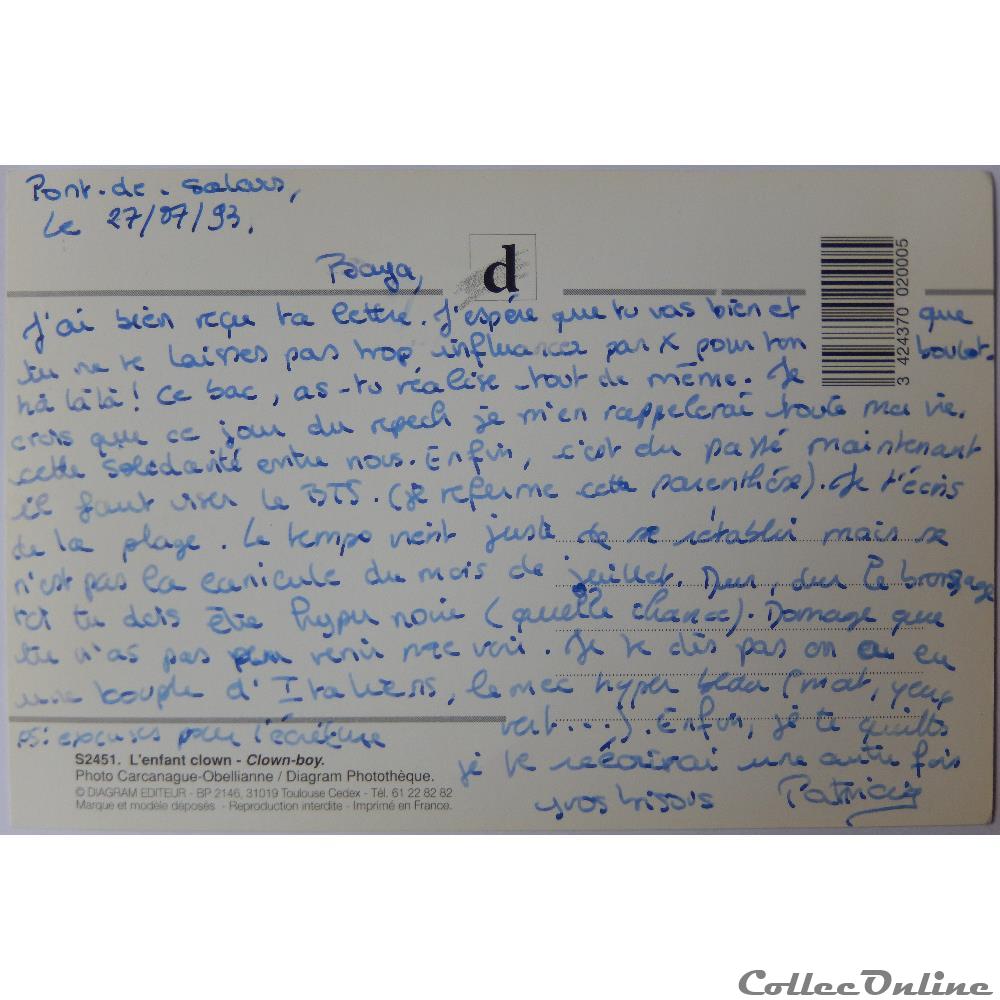 Pont-de-Salars,
Le 27/07/93.
Baya,
d
J'ai bien reçue ta lettre. J'espère que tu vas bien et que
tu ne te laisses pas trop influancer par X pour ton boulot.
hà làlà! Ce bac, as-tu réalisé tout de même. Je
crois que ce jour du repech je m'en rappelerai toute ma vie.
cette solidarité entre nous. Enfin, c'est du passé maintenant
il faut viser le BTS. (je referme cette parenthèse). Je t'écris
de la plage. Le temps vient juste de se rétablir mais se
n'est pas la canicule du mois de juillet. Dur, dur le bronzage
toi tu dois être hyper noire (quelle chance). Domage que
tu n'as pas pu venir me voir. Je te dis pas on a eu
une couple d'Italiens, le mec hyper beau (mat, yeux
vert...). Enfin, je te quitte
ps: excuses pour l'écriture
je te réécrirai une autre fois
gros bisous Patricia
3 424370 020005
S2451. L'enfant clown - Clown-boy.
Photo Carcanague-Obellianne / Diagram Photothèque.
© DIAGRAM EDITEUR - BP 2146, 31019 Toulouse Cedex - Tél. 61 22 82 82
Marque et modèle déposés - Reproduction interdite - Imprimé en France.
CollecOnline